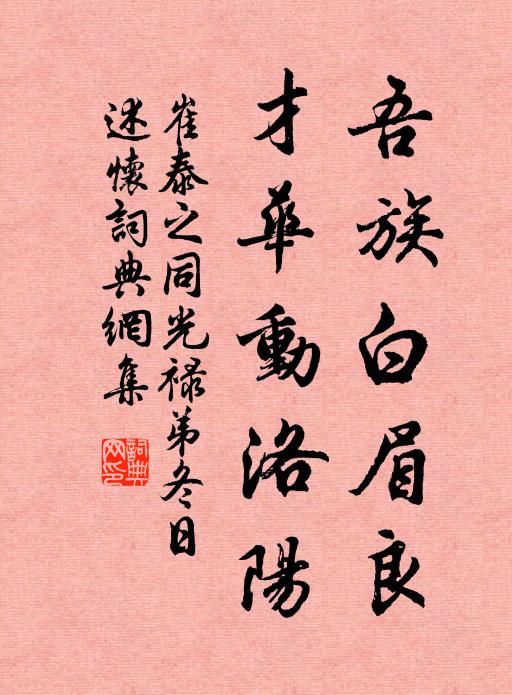 吾族白眉良
才華動洛陽
崔泰之同光祿弟冬日
述懷詞典網集
詞典
网印